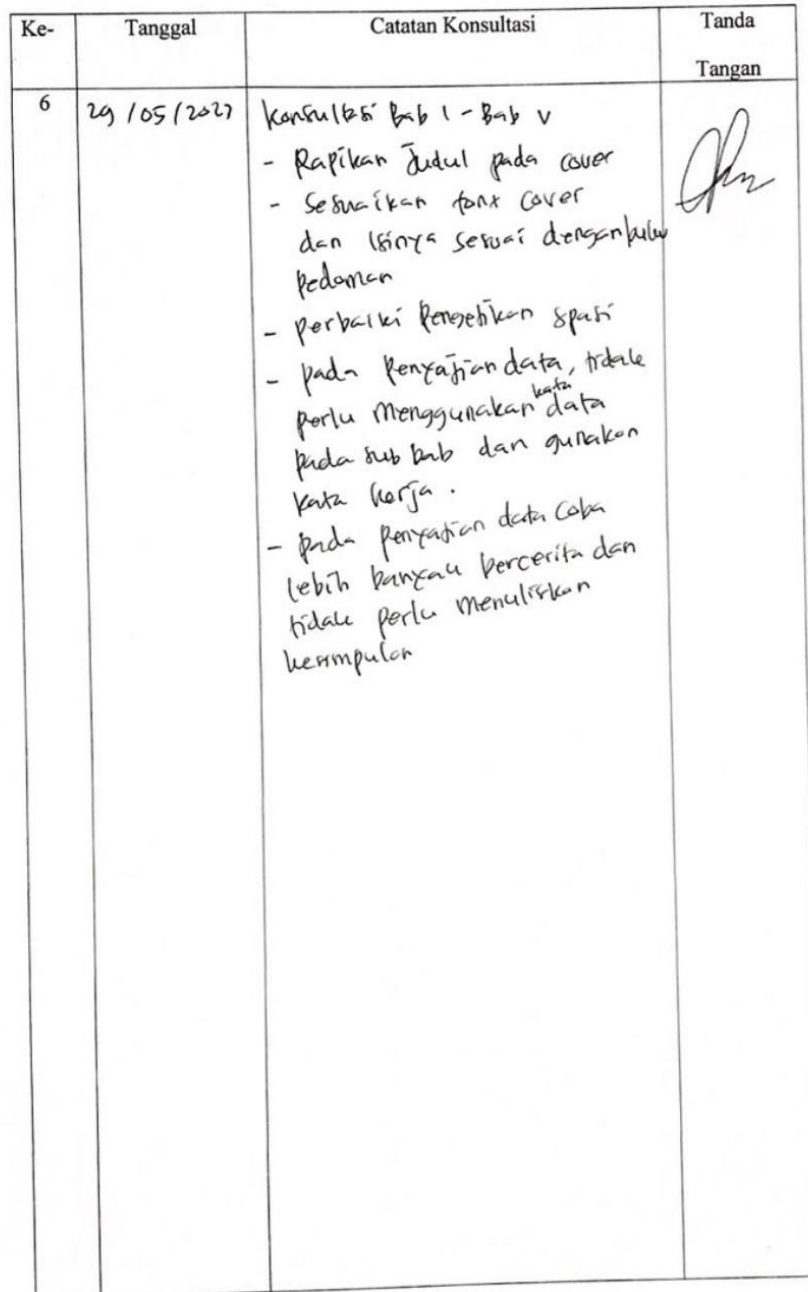 Ke- Tanggal Catatan Konsultasi Tanda
Tangan
6 29/05/2023 Konsultasi Bab I - Bab V
- Rapikan Judul pada cover
- Sesuaikan font cover
dan isinya sesuai dengan buku
pedoman
- perbaiki Pengetikan spasi
- pada Penyajian data, tidak
perlu menggunakan kata data
pada sub bab dan gunakan
kata kerja.
- pada penyajian data coba
lebih banyak bercerita dan
tidak perlu menuliskan
kesimpulan